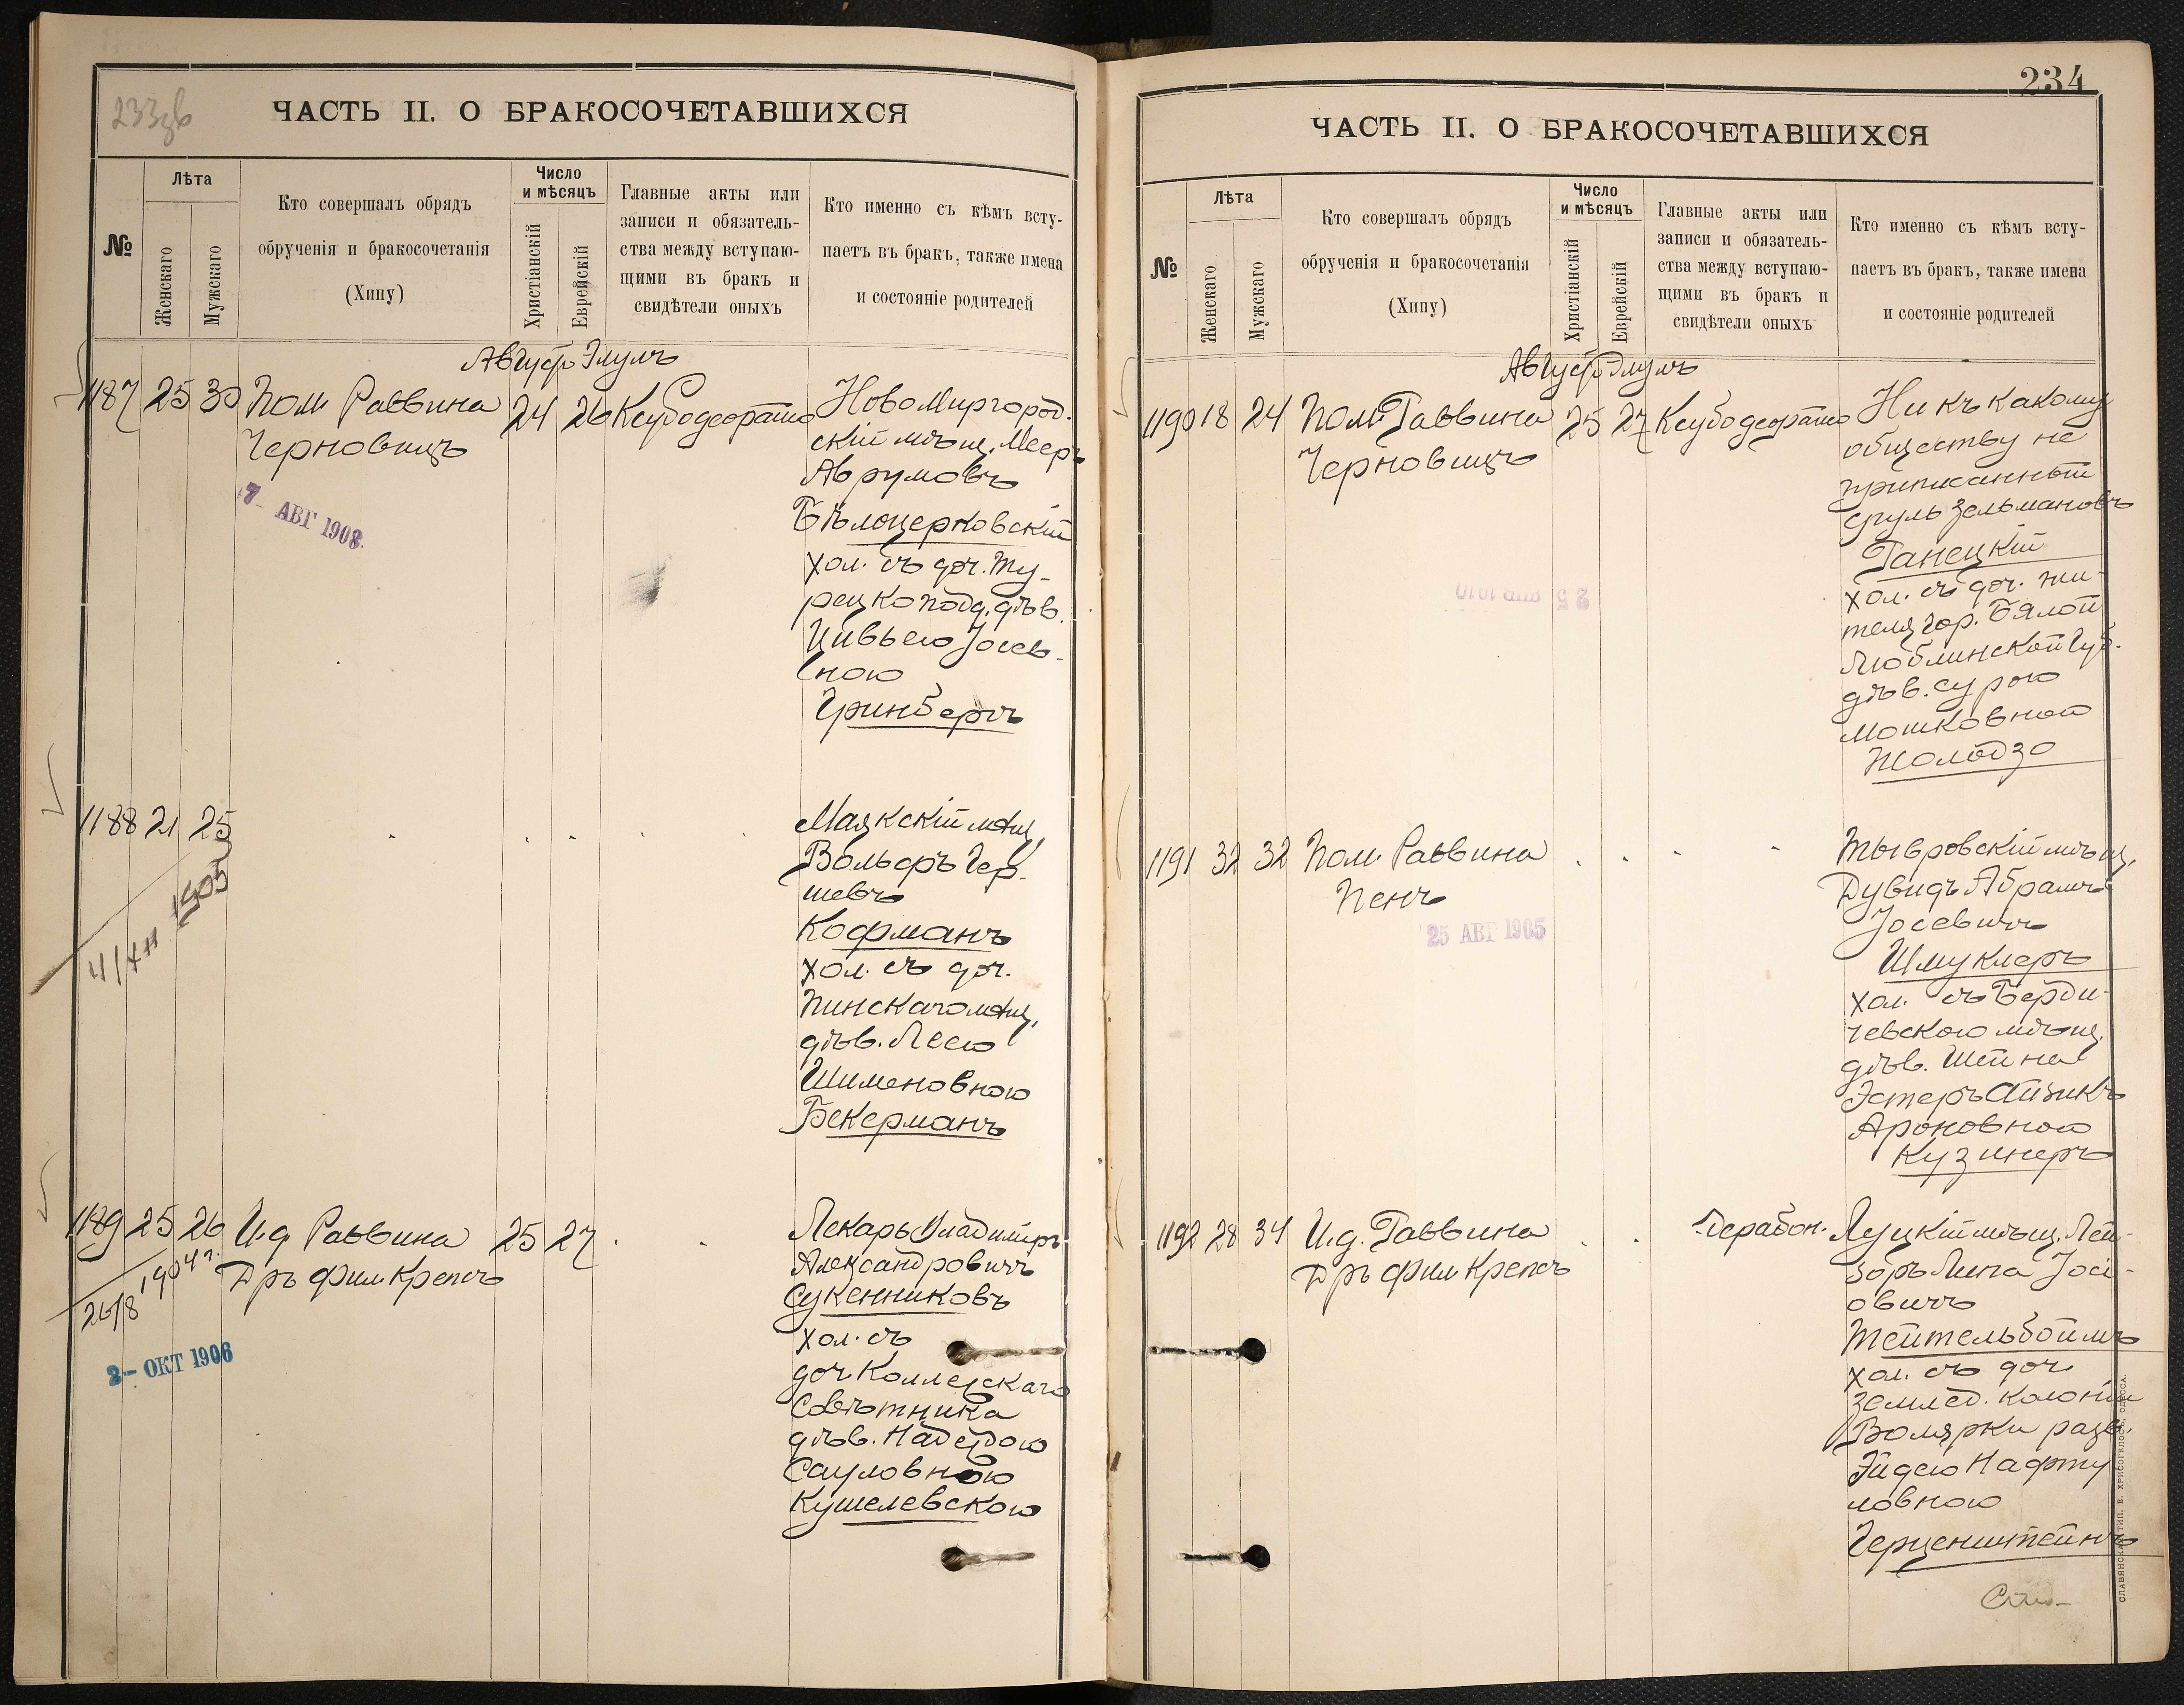 233об
ЧАСТЬ II. О БРАКОСОЧЕТАВШИХСЯ
№
Лѣта
Женскаго
Мужскаго
Кто совершалъ обрядъ
обрученія и бракосочетанія
(Хипу)
Число
и мѣсяцъ
Христіанскій
Еврейскій
Главные акты или
записи и обязатель-
ства между вступаю-
щими въ бракъ и
свидѣтели оныхъ
Кто именно съ кѣмъ всту-
паетъ въ бракъ, также имена
и состояніе родителей
Августъ Элулъ
1187 25 30 Пом. Раввина 24 26
Черновицъ
7- АВГ 1908
НовоМиргород.
скій мѣщ. Мееръ
Аврумовъ
Бѣлоцерковскій
хол. съ доч. Ту-
рецкоподд. дѣв.
Цивьею Іосев-
ною
Гринбергъ
1188 21 25
1905
Маякскій мѣщ.
Вольфъ Гер-
шевъ
Кофманъ
хол. съ доч.
Пинскаго мѣщ.
дѣв. Леею
Шименовною
Бекерманъ
1189 25 26 И.д. Раввина 25 27
Дръ Фил Крепсъ
26/8 1904 г.
2- ОКТ 1906
Лекарь Владиміръ
Александровичъ
Сукенниковъ
хол. съ
доч. Коллежскаго
Совѣтника
дѣв. Надеждою
Сауловною
Кушелевскою
234
ЧАСТЬ II. О БРАКОСОЧЕТАВШИХСЯ
№
Лѣта
Женскаго
Мужскаго
Кто совершалъ обрядъ
обрученія и бракосочетанія
(Хипу)
Число
и мѣсяцъ
Христіанскій
Еврейскій
Главные акты или
записи и обязатель-
ства между вступаю-
щими въ бракъ и
свидѣтели оныхъ
Кто именно съ кѣмъ всту-
паетъ въ бракъ, также имена
и состояніе родителей
Августъ Элулъ
1190 18 24 Пом. Раввина 25 27
Черновицъ
Ни къ какому
обществу не
приписанный
Сруль Зельмановъ
Ганецкій
хол. съ доч. жи-
теля гор. Бялой
Люблинской Губ.
дѣв. Сурою
Мошковною
Жолодзо
1191 32 32 Пом. Раввина
Пенъ
25 АВГ 1905
Тывровскій мѣщ.
Дувидъ Абрамъ
Іосевичъ
Шмуклеръ
хол. съ Берди-
чевскою мѣщ.
дѣв. Шейна
Эстеръ Айзикъ
Ароновною
Кузинеръ
1192 28 34 И.д. Раввина
Дръ Фил Крепсъ
Дерабон.
Луцкій мѣщ. Лей-
зоръ Липа Іосі-
овичъ
Тейтельбоймъ
хол. съ доч.
землед. колоніи
Волярки разв.
Эйдею Нафту
ловною
Герценштейнъ
СЛАВЯНСКАЯ ТИП. Е. ХРИСОГЕЛОСЪ, ОДЕССА.